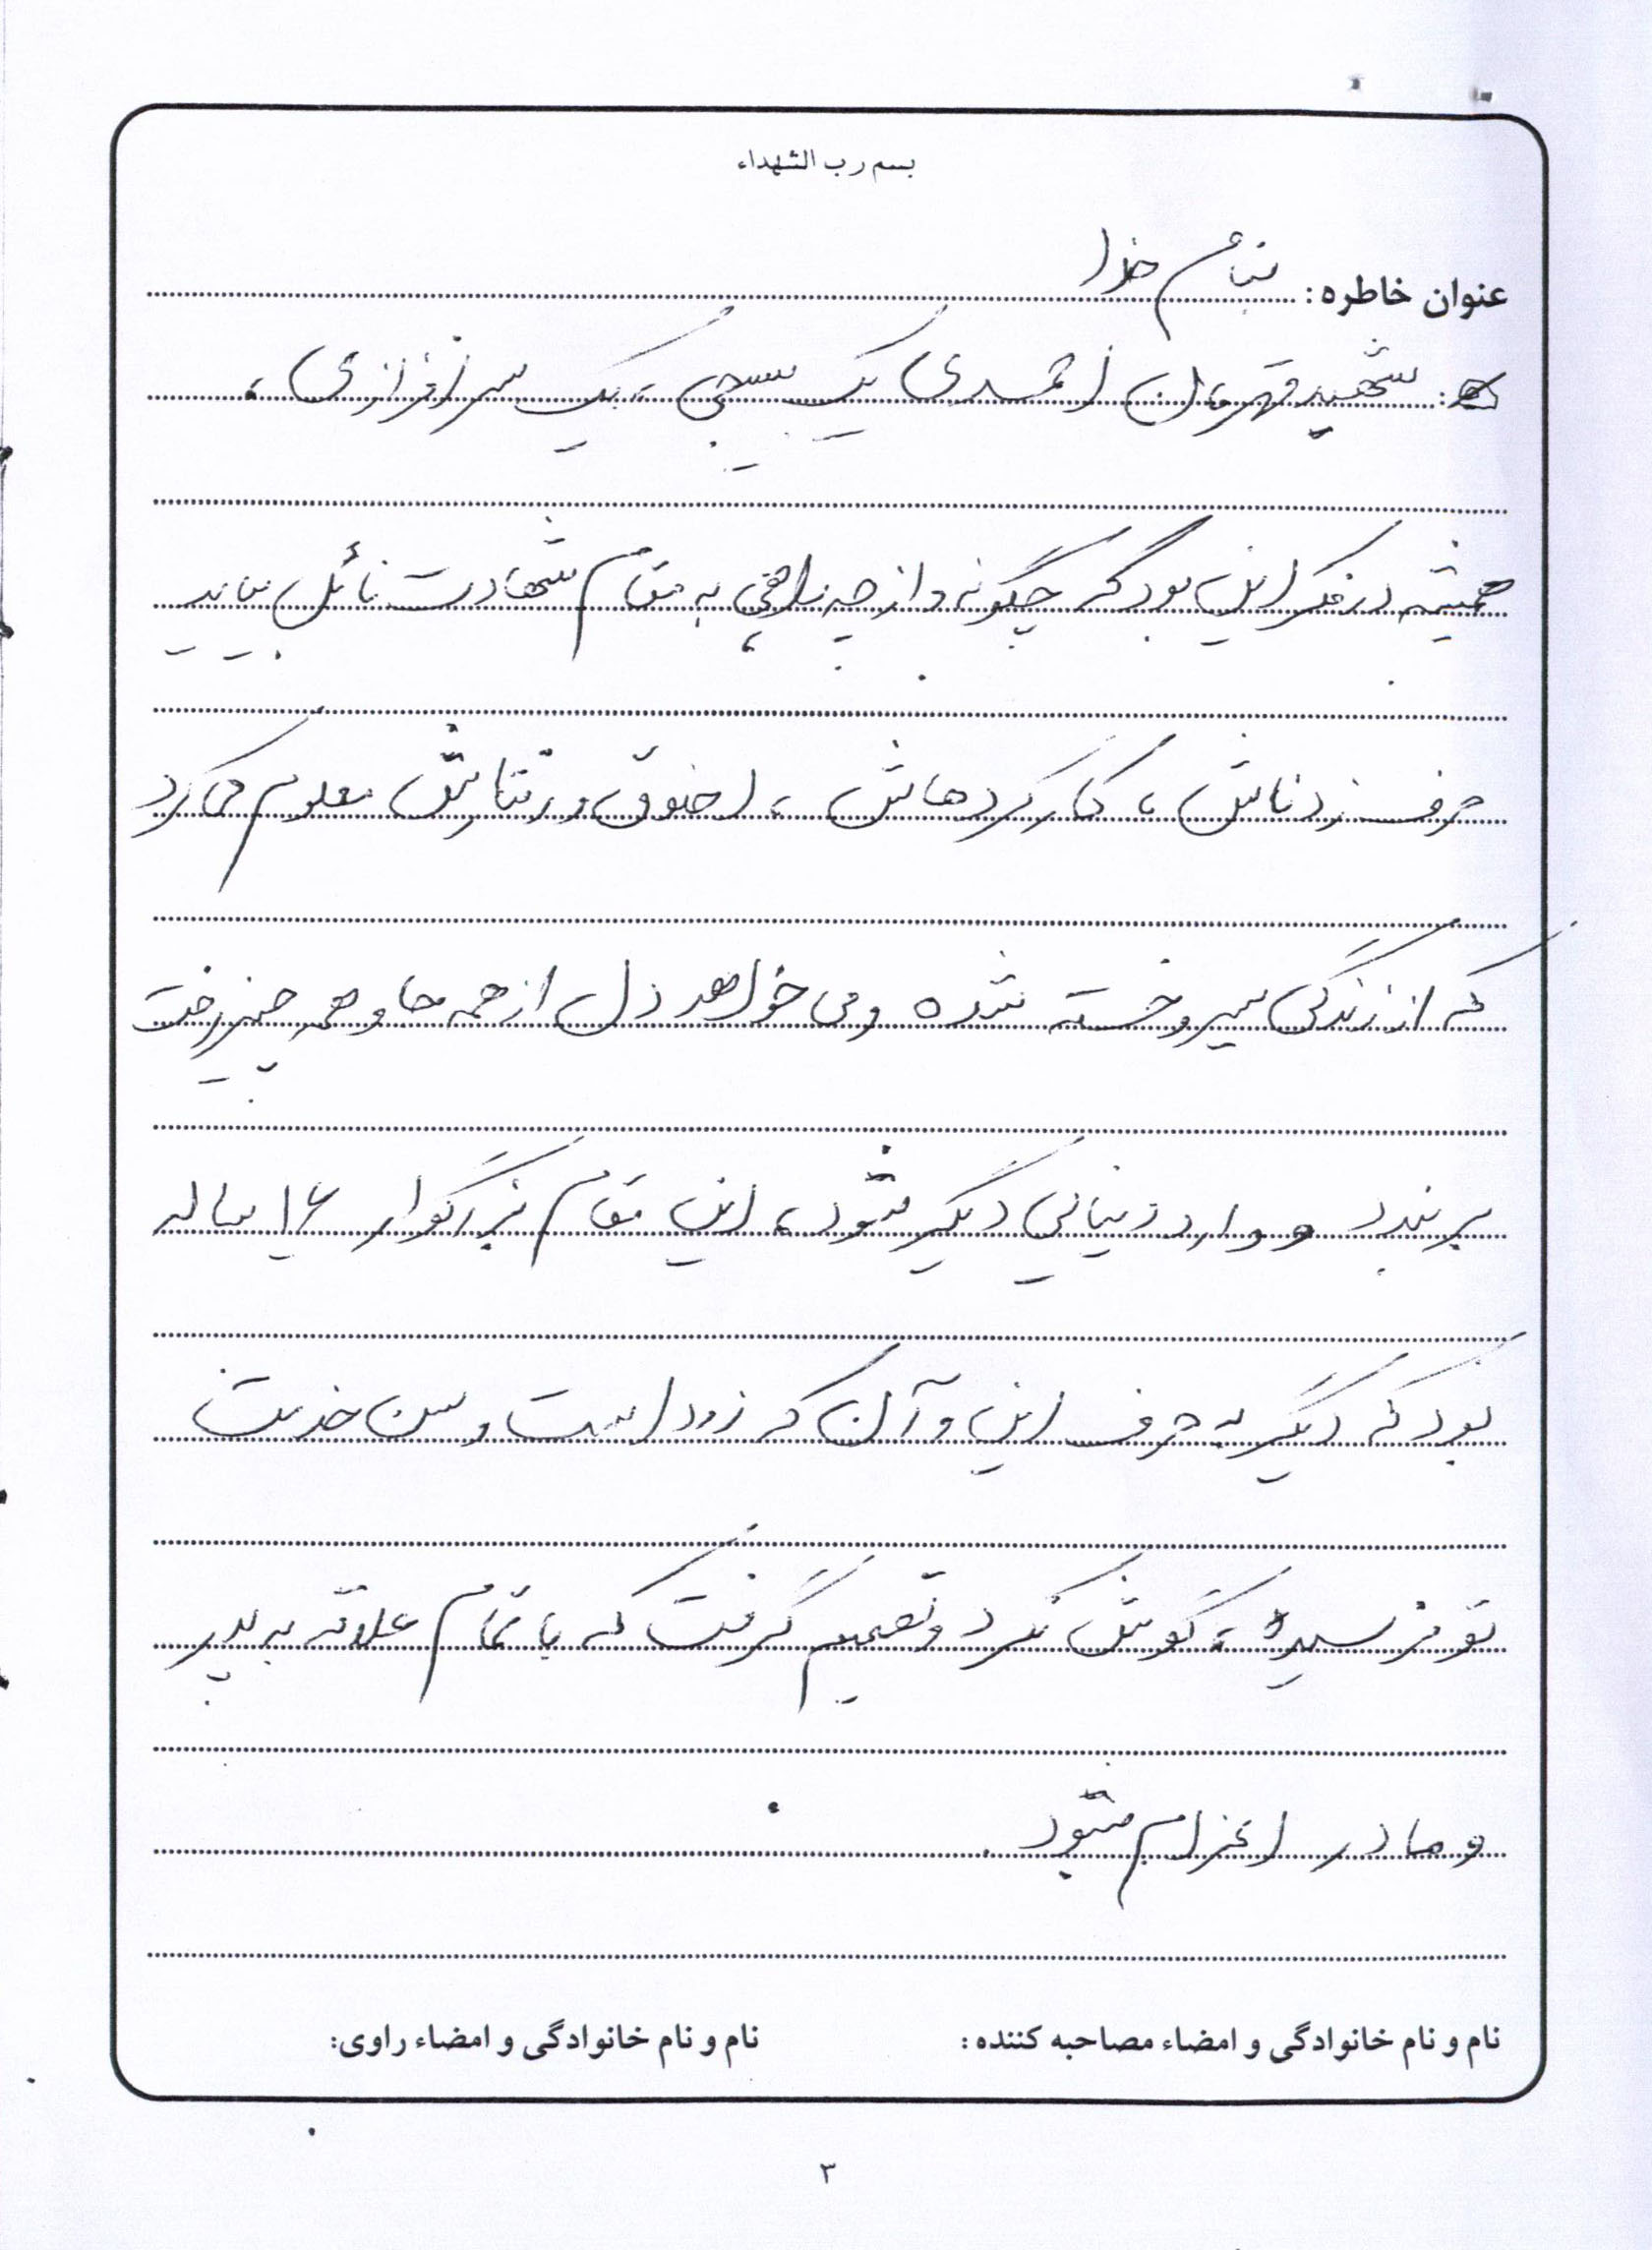 بسم رب الشهداء
عنوان خاطره: بنام خدا
شهید قهرمان احمدی یک بسیجی، یک سرافرازی،
همیشه در فکر این بود که چگونه و از چه راهی به مقام شهادت نائل بیاید
حرف زدنانش، کارکردهاش، اخلاق و رفتارش معلوم می کرد
که از زندگی سیر و خسته شده و می خواهد دل از همه جا و همه چیز رخت
بر بندد و وارد دنیایی دیگر شود، این مقام بزرگوار ۱۶ ساله
بود که دیگر به حرف این و آن که زود است و سن خدمت
تو نرسیده، گوش نکرد و تصمیم گرفت که با تمام علاقه به پدر
و مادر اعزام شود.
نام و نام خانوادگی و امضاء مصاحبه کننده: نام و نام خانوادگی و امضاء راوی:
۳